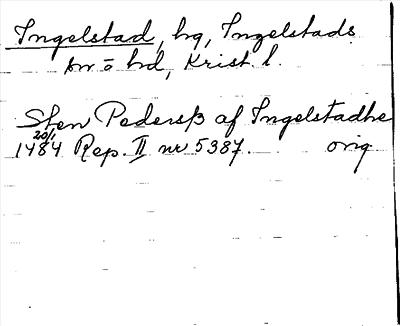 Ingelstad, hg, Ingelstads
sn o hd, Krist. l.
Sten Pedersß af Ingelstadhe
20/1
1484 Rep. II nr 5387. orig